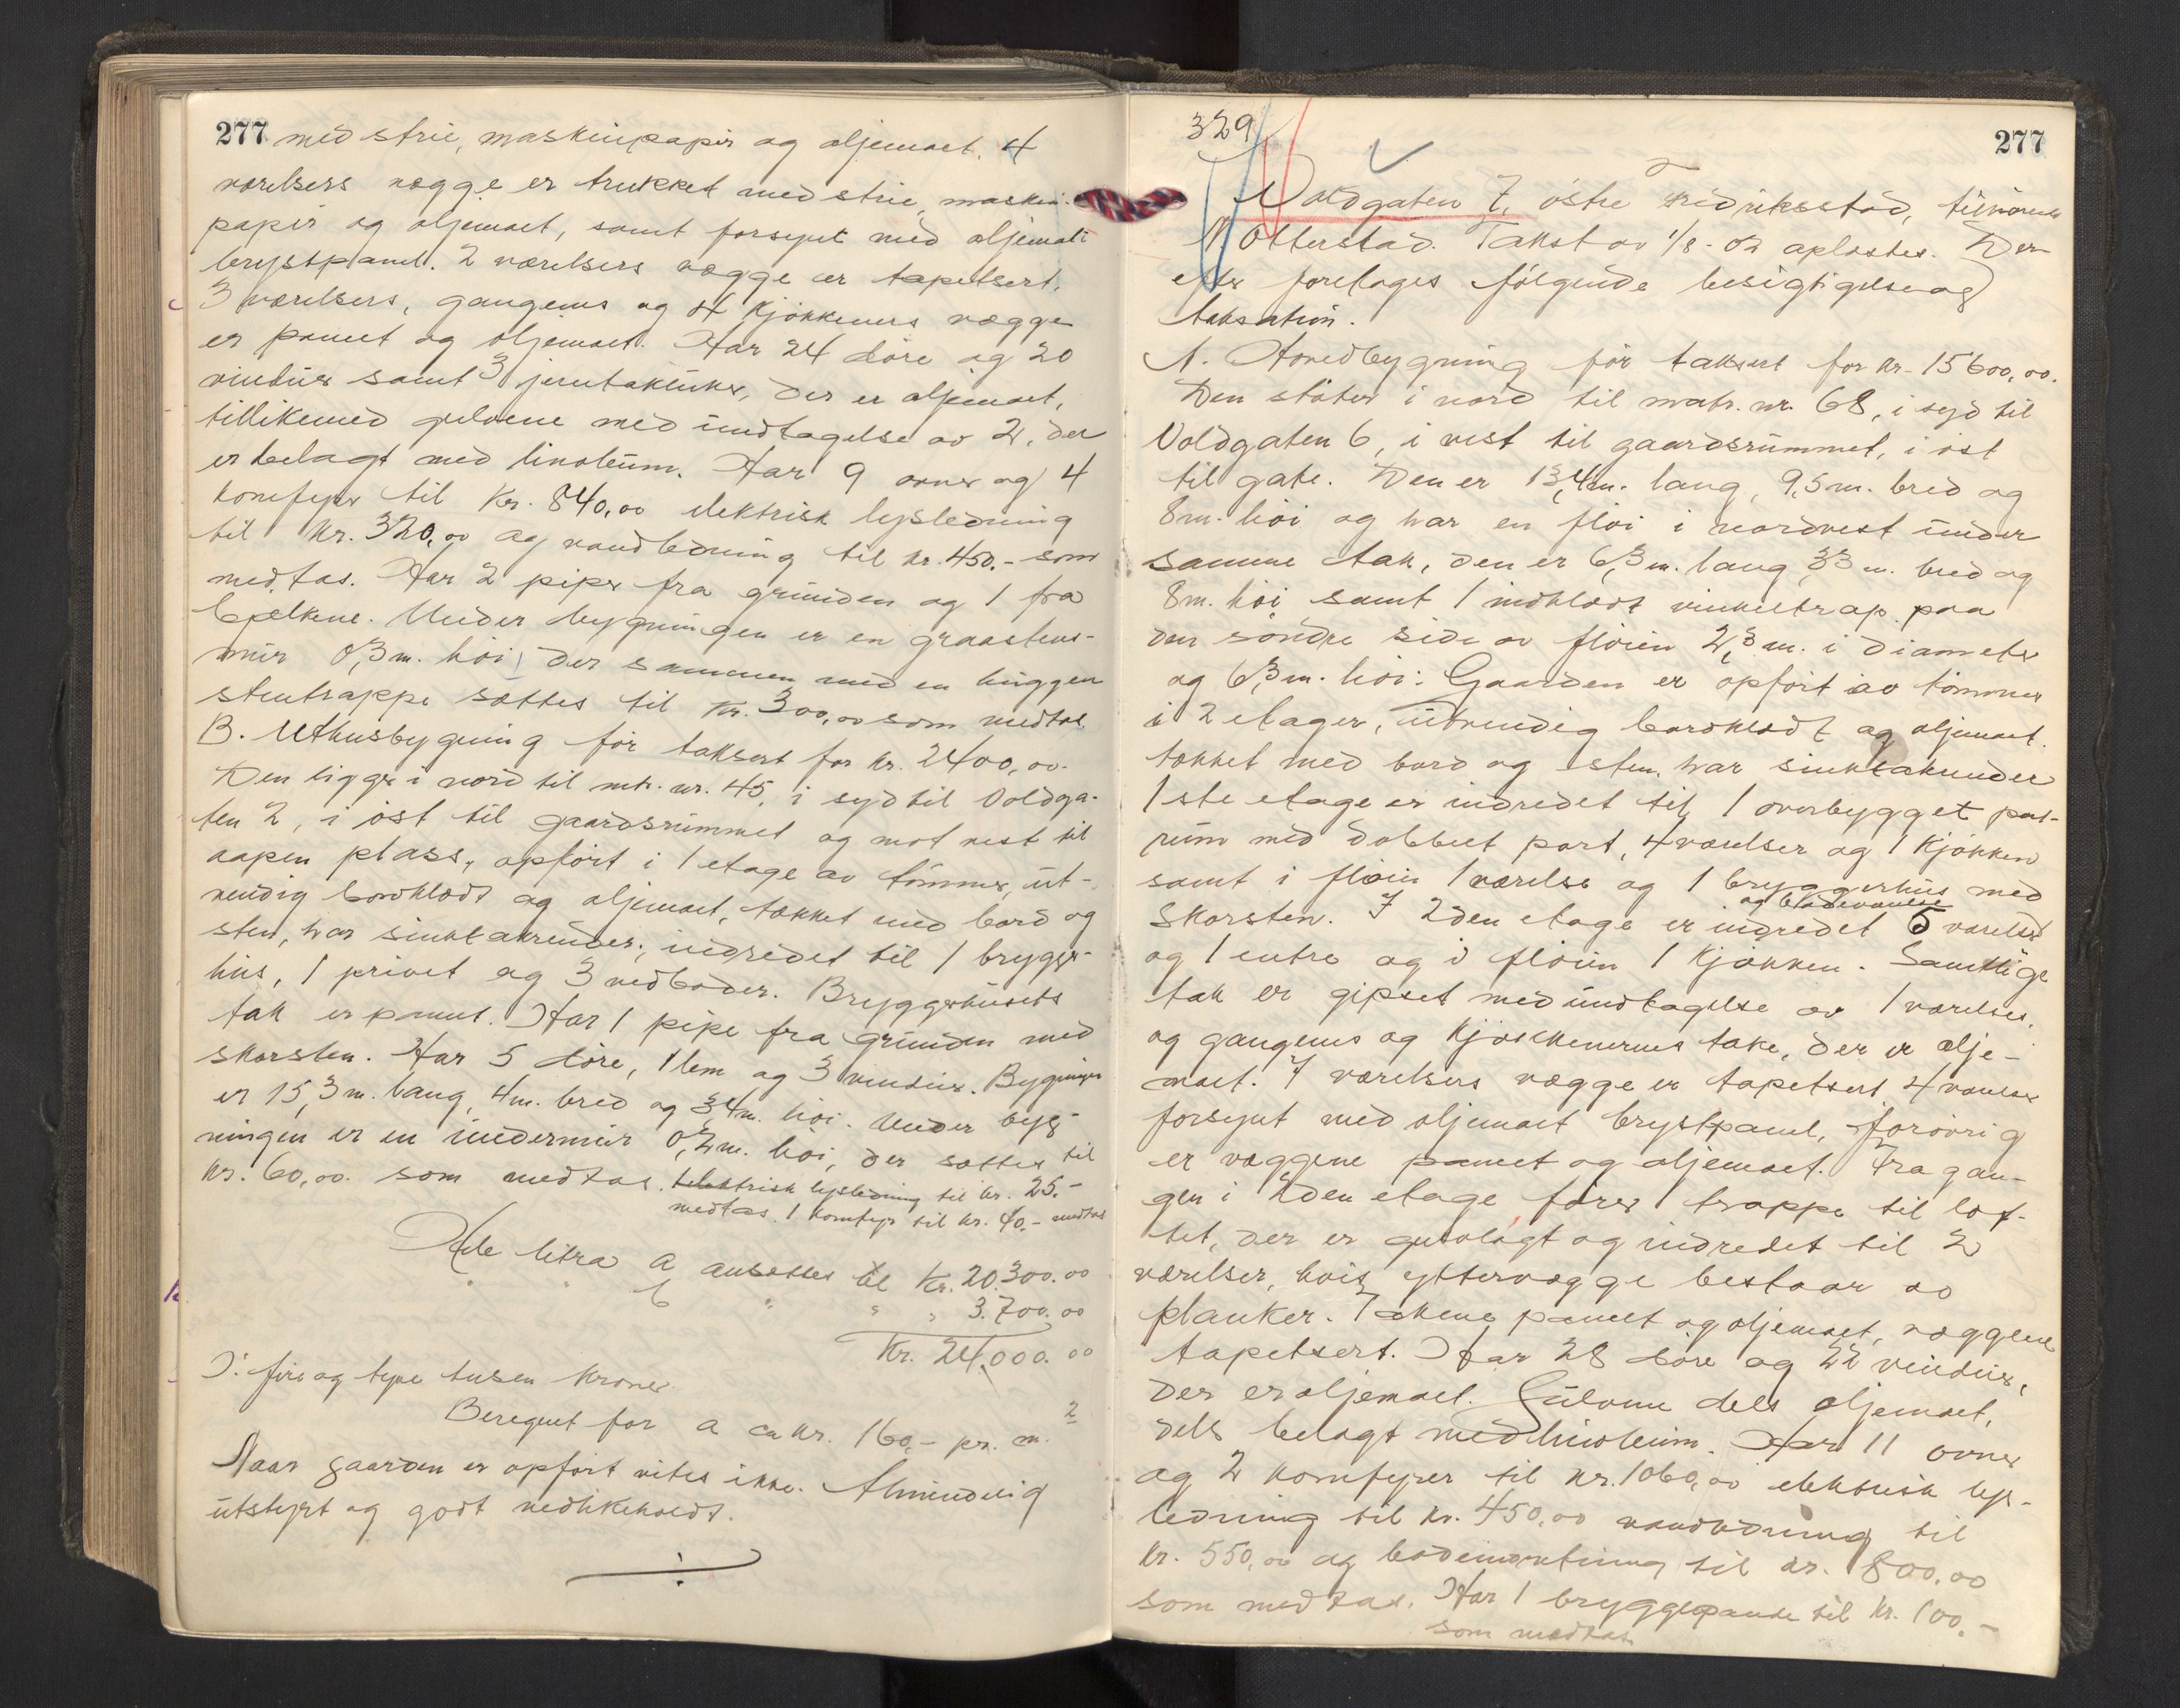 277 med strie, maskinpapir og oljemalt. 4
værelsers vægge er trukket med strie, maskin-
papir og oljemalt, samt forsynt med oljemalt
brystpanel. 2 værelsers vægge er tapetsert.
3 værelsers, gangens og 4 kjøkkeners vægge
er panelt og oljemalt. Har 24 døre og 20
vinduer samt 3 jerntakluker, der er oljemalt,
tillikemed gulvene med undtagelse av 2, der
er belagt med linoleum. Har 9 ovner og 4
komfyrer til Kr. 840,00 elektrisk lysledning
til Kr. 320,00 og vandledning til kr. 450.- som
medtas. Har 2 piper fra grunden og 1 fra
bjelkene. Under bygningen er en graastens-
mur 0,3 m. høi, der sammen med en huggen
stentrappe sættes til Kr. 300,00 som medtas.
B. Uthusbygning før taksert for kr. 2400,00.
Den ligger i nord til mtr. nr. 45, i syd til Voldga-
ten 2, i øst til gaardsrummet og mot vest til
aapen plass, opført i 1 etage av tømmer, ut-
vendig bordklædt og oljemalt, tækket med bord og
sten, har sinktakrender; indredet til 1 brygger-
hus, 1 privet og 3 vedboder. Bryggerhusets
tak er panelt. Har 1 pipe fra grunden med
skorsten. Har 5 døre, 1 lem og 3 vinduer. Bygningen
er 15,3 m. lang, 4 m. bred og 3,4 m. høi. Under byg-
ningen er en undermur 0,2 m. høi, der sættes til
kr. 60,00. som medtas. elektrisk lysledning til kr. 25.-
medtas. 1 komfyr til kr. 40.- medtas
Hele litra a ansettes til Kr. 20.300.00
" " b " " " 3.700.00
Kr. 24.000.00
D: fire og tyve tusen kroner.
Beregnet for a ca kr. 160,- pr. m.2
Naar gaarden er opført vites ikke. Almindelig
utstyrt og godt vedlikeholdt.
329
277
Voldgaten 7, østre Fredriksstad, tilhørende
N Otterstad. Takst av 1/8-02 oplæstes. Der-
efter foretages følgende besigtigelse og
taksation.
A. Hovedbygning før taksert for kr. 15600,00.
Den støter i nord til matr. nr. 68, i syd til
Voldgaten 6, i vest til gaardsrummet, i øst
til gate. Den er 13,4 m. lang, 9,5 m. bred og
8 m. høi og har en fløi i nordvest under
samme tak, den er 6,3 m. lang, 3,3 m. bred og
8 m. høi samt 1 indklædt vinkeltrap. paa
den søndre side av fløien 2,3 m. i diameter
og 6,3 m. høi: Gaarden er opført av tømmer
i 2 etager, utvendig bordklædt og oljemalt.
tækket med bord og sten. har sinktakrender
1ste etage er indredet til 1 overbygget port-
rum med dobbelt port, 4 værelser og 1 kjøkken
samt i fløien 1 værelse og 1 bryggerhus med
skorsten. I 2den etage er indredet 5 værelser
og badeværelse
og 1 entre og i fløien 1 kjøkken. Samtlige
tak er gipset med undtagelse av 1 værelses,
og gangens og kjøkkenernes take, der er olje-
malt. 7 værelsers vægge er tapetsert. 4 værelser
forsynt med oljemalt brystpanel, forøvrig
er væggene panelt og oljemalt. Fra gan-
gen i 2den etage fører trappe til lof-
tet, der er gulvlagt og indredet til 2
værelser, hvis yttervægge bestaar av
planker. Takene panelt og oljemalt, væggene
tapetsert. Har 28 døre og 22 vinduer,
der er oljemalt. Gulvene dels oljemalt,
dels belagt med linoleum. Har 11 ovner
og 2 komfyrer til kr. 1060,00 elektrisk lys-
ledning til kr. 450,00 vandledning til
kr. 550,00 og badeinnretning til kr. 800.00
som medtas. Har 1 bryggepande til kr. 100.-
som medtas